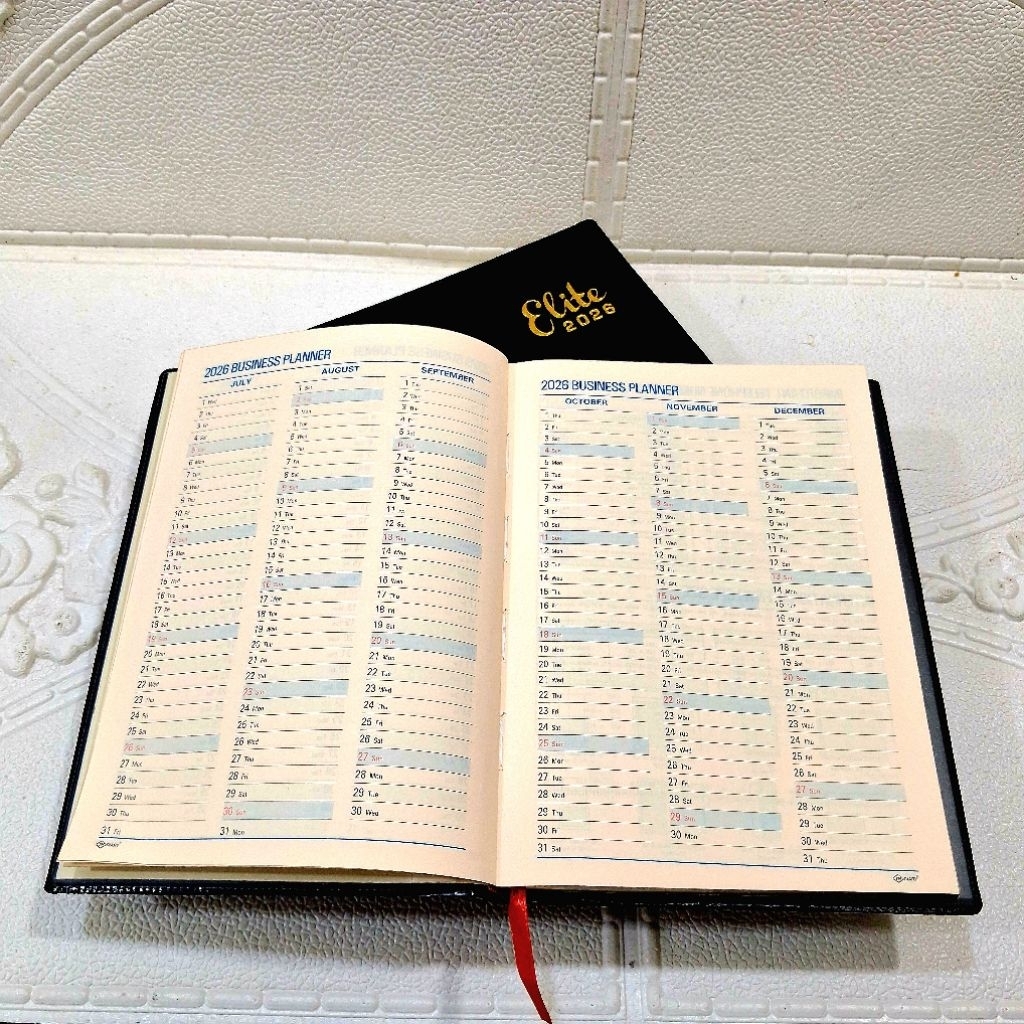 Elite
2026
2026 BUSINESS PLANNER
JULY
1 Wed
2 Thu
3 Fri
4 Sat
5 Sun
6 Mon
7 Tue
8 Wed
9 Thu
10 Fri
11 Sat
12 Sun
13 Mon
14 Tue
15 Wed
16 Thu
17 Fri
18 Sat
19 Sun
20 Mon
21 Tue
22 Wed
23 Thu
24 Fri
25 Sat
26 Sun
27 Mon
28 Tue
29 Wed
30 Thu
31 Fri
AUGUST
1 Sat
2 Sun
3 Mon
4 Tue
5 Wed
6 Thu
7 Fri
8 Sat
9 Sun
10 Mon
11 Tue
12 Wed
13 Thu
14 Fri
15 Sat
16 Sun
17 Mon
18 Tue
19 Wed
20 Thu
21 Fri
22 Sat
23 Sun
24 Mon
25 Tue
26 Wed
27 Thu
28 Fri
29 Sat
30 Sun
31 Mon
SEPTEMBER
1 Tue
2 Wed
3 Thu
4 Fri
5 Sat
6 Sun
7 Mon
8 Tue
9 Wed
10 Thu
11 Fri
12 Sat
13 Sun
14 Mon
15 Tue
16 Wed
17 Thu
18 Fri
19 Sat
20 Sun
21 Mon
22 Tue
23 Wed
24 Thu
25 Fri
26 Sat
27 Sun
28 Mon
29 Tue
30 Wed
2026 BUSINESS PLANNER
OCTOBER
1 Thu
2 Fri
3 Sat
4 Sun
5 Mon
6 Tue
7 Wed
8 Thu
9 Fri
10 Sat
11 Sun
12 Mon
13 Tue
14 Wed
15 Thu
16 Fri
17 Sat
18 Sun
19 Mon
20 Tue
21 Wed
22 Thu
23 Fri
24 Sat
25 Sun
26 Mon
27 Tue
28 Wed
29 Thu
30 Fri
31 Sat
NOVEMBER
1 Sun
2 Mon
3 Tue
4 Wed
5 Thu
6 Fri
7 Sat
8 Sun
9 Mon
10 Tue
11 Wed
12 Thu
13 Fri
14 Sat
15 Sun
16 Mon
17 Tue
18 Wed
19 Thu
20 Fri
21 Sat
22 Sun
23 Mon
24 Tue
25 Wed
26 Thu
27 Fri
28 Sat
29 Sun
30 Mon
DECEMBER
1 Tue
2 Wed
3 Thu
4 Fri
5 Sat
6 Sun
7 Mon
8 Tue
9 Wed
10 Thu
11 Fri
12 Sat
13 Sun
14 Mon
15 Tue
16 Wed
17 Thu
18 Fri
19 Sat
20 Sun
21 Mon
22 Tue
23 Wed
24 Thu
25 Fri
26 Sat
27 Sun
28 Mon
29 Tue
30 Wed
31 Thu